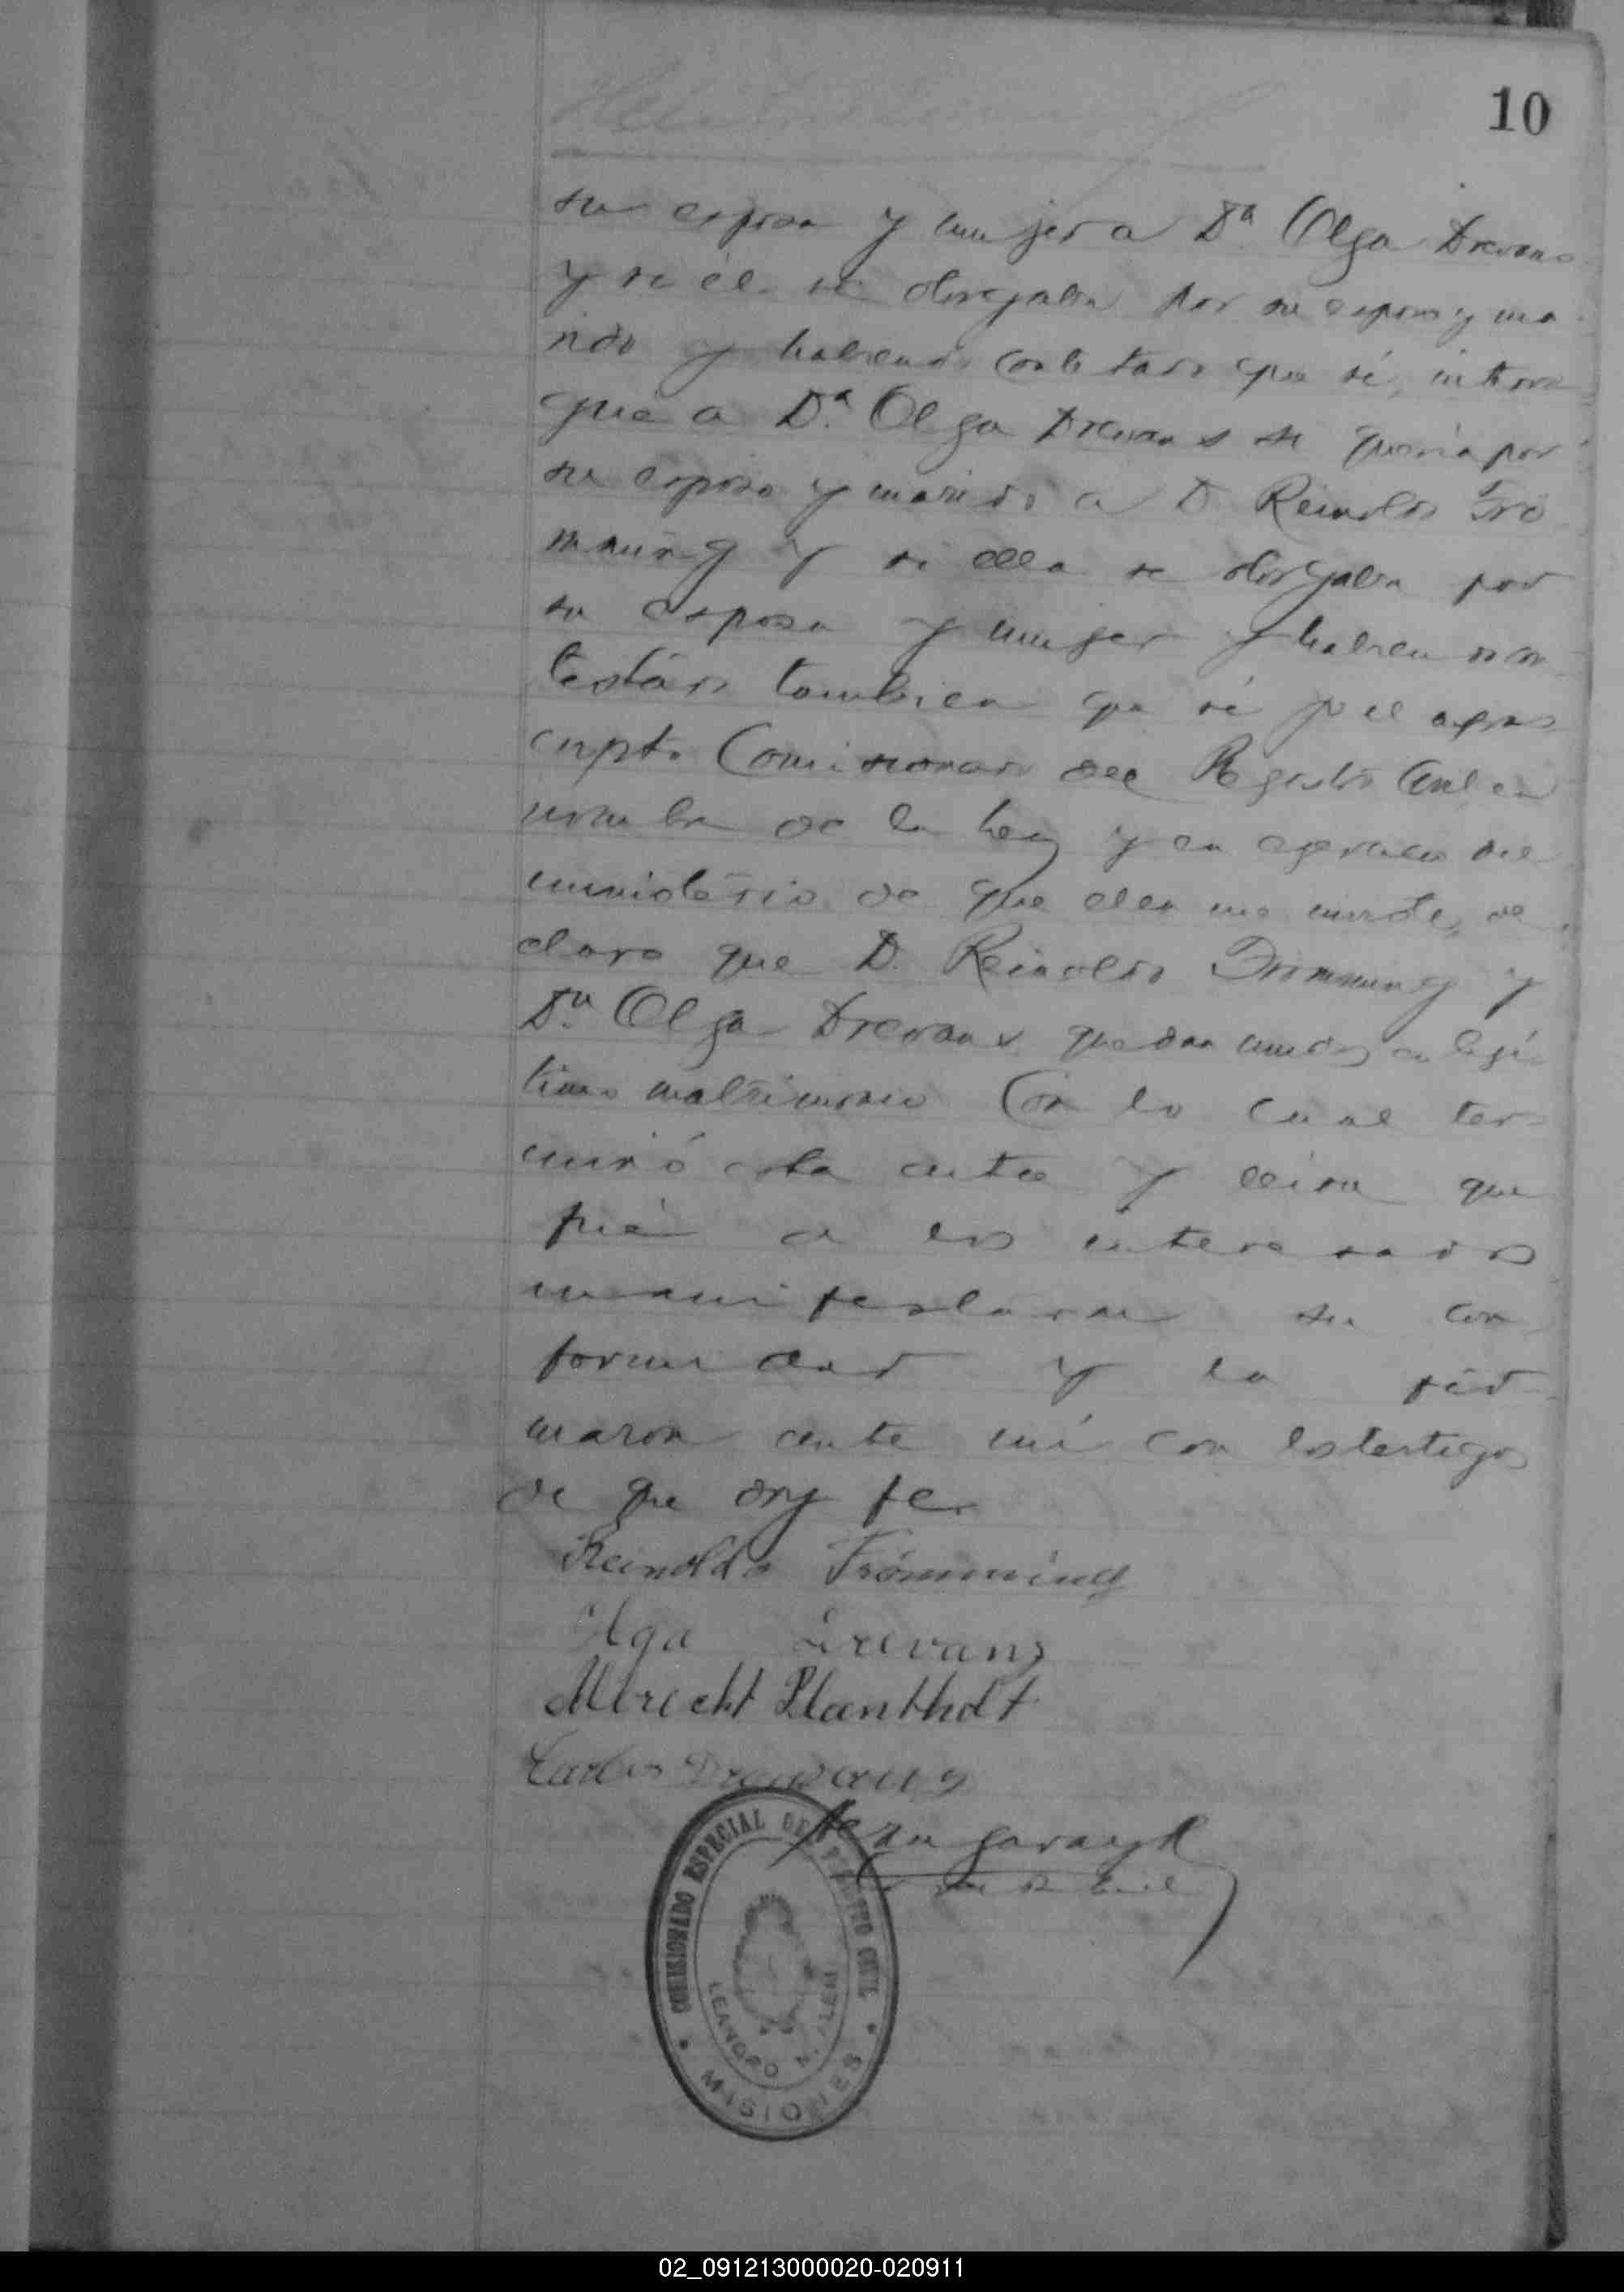 10
su esposa y mujer a Dª Olga Drevans
y si él se otorgaba por su esposo y ma
rido y habiendo contestado que sí, interro
gué a Dª Olga Drevans si quería por
su esposo y marido a D. Reinoldo Frö
mming y si ella se otorgaba por
su esposa y mujer y habiendo con
testado tambien que sí yo el
cripto Comisionado del Registro Civil en
nombre de la ley y en ejercicio del
ministério de que ella me inviste, de
claro que D. Reinoldo Frömming y
Dª Olga Drevans quedan unidos en legí
timo matrimonio Con lo cual ter
minó esta acta y leida que
fué a los interesados
manifestaron su con
formidad y la fir
maron ante mí con los testigos
de que doy fe.
Reinoldo Frömming
Olga Drevans
Albrecht Plantholt
Carlos Drewans
COMISIONADO ESPECIAL DEL REGISTRO CIVIL
LEANDRO N. ALEM
* MISIONES *
02_091213000020-020911